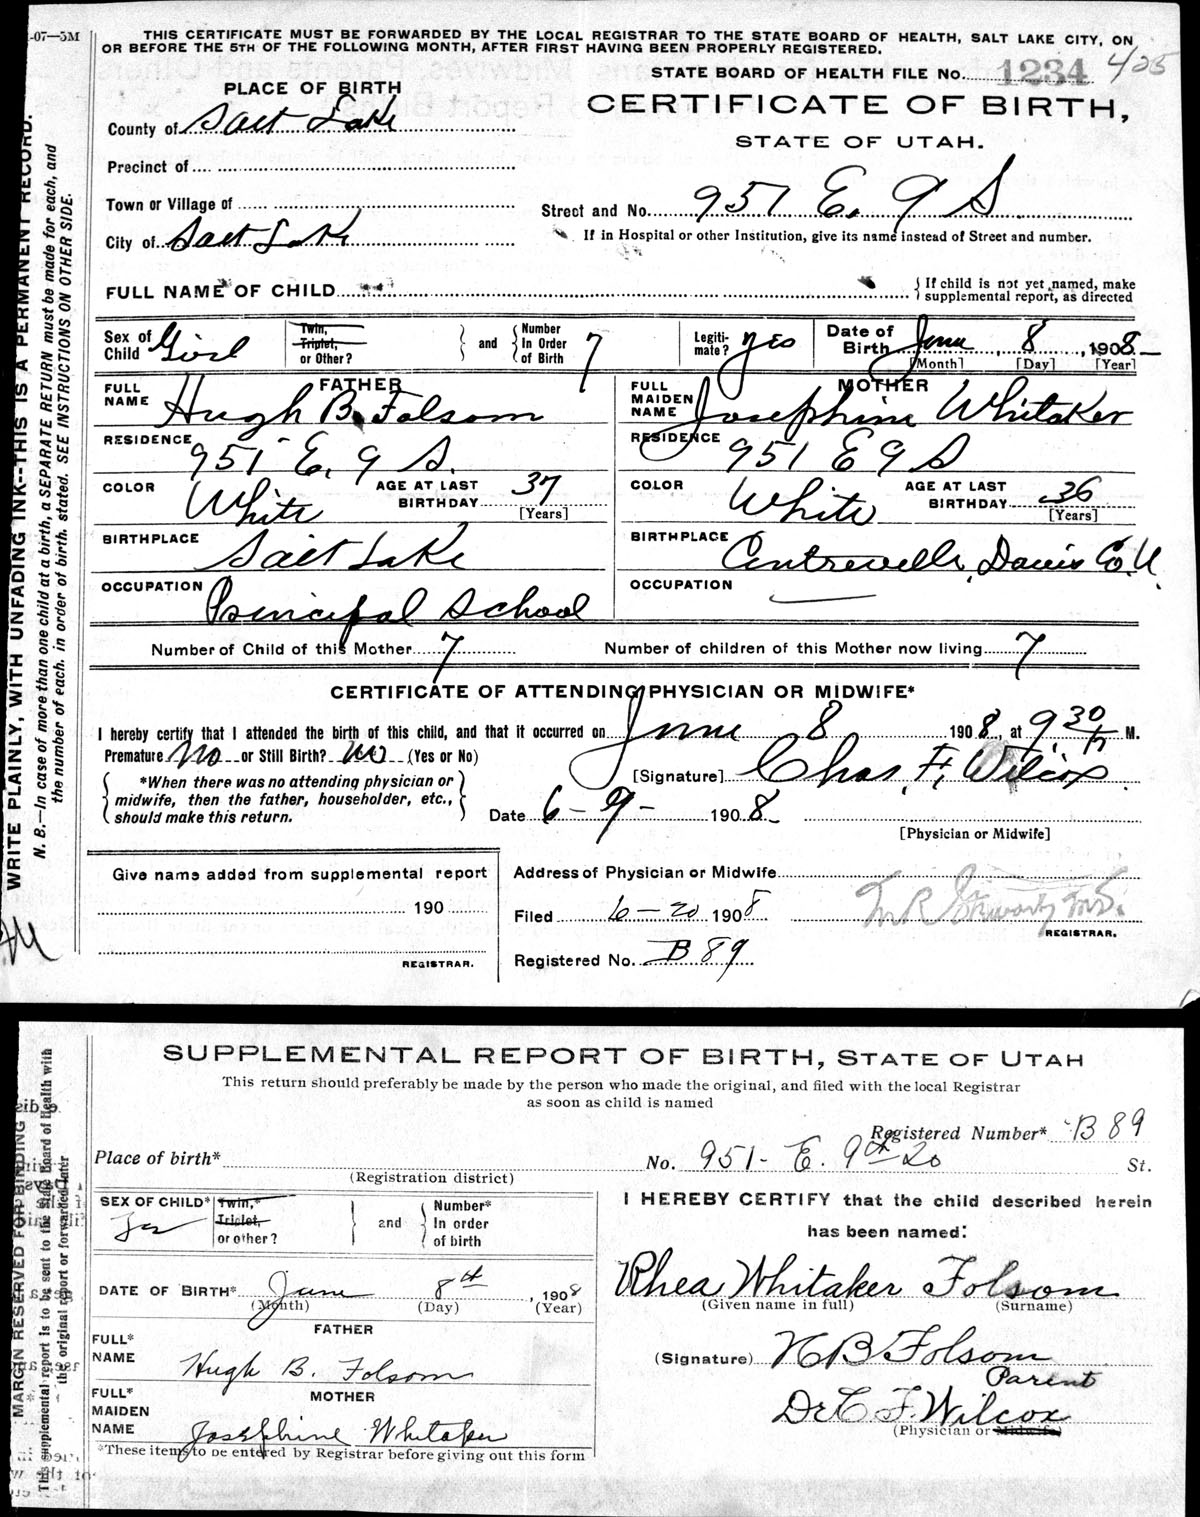 -07—5M
THIS CERTIFICATE MUST BE FORWARDED BY THE LOCAL REGISTRAR TO THE STATE BOARD OF HEALTH, SALT LAKE CITY, ON
OR BEFORE THE 5TH OF THE FOLLOWING MONTH, AFTER FIRST HAVING BEEN PROPERLY REGISTERED.
STATE BOARD OF HEALTH FILE No. 1234 425
PLACE OF BIRTH
CERTIFICATE OF BIRTH,
STATE OF UTAH.
County of Salt Lake
Precinct of
Town or Village of
City of Salt Lake
Street and No. 951 E. 9 S
If in Hospital or other Institution, give its name instead of Street and number.
FULL NAME OF CHILD
If child is not yet named, make
supplemental report, as directed
Sex of Child Girl
Twin, Triplet, or Other?
and
Number In Order of Birth 7
Legitimate? yes
Date of Birth June 8, 1908
[Month] [Day] [Year]
FATHER
FULL NAME Hugh B. Folsom
RESIDENCE 951 E. 9 S.
COLOR White
AGE AT LAST BIRTHDAY 37
[Years]
BIRTHPLACE Salt Lake
OCCUPATION Principal School
MOTHER
FULL MAIDEN NAME Josephine Whitaker
RESIDENCE 951 E 9 S
COLOR White
AGE AT LAST BIRTHDAY 36
[Years]
BIRTHPLACE Centreville, Davis Co. U.
OCCUPATION
Number of Child of this Mother 7
Number of children of this Mother now living 7
CERTIFICATE OF ATTENDING PHYSICIAN OR MIDWIFE*
I hereby certify that I attended the birth of this child, and that it occurred on June 8 1908, at 9 30 M.
Premature No or Still Birth? No (Yes or No)
[Signature] Chas. F. Wilcox
*When there was no attending physician or
midwife, then the father, householder, etc.,
should make this return.
Date 6-9- 1908
[Physician or Midwife]
Give name added from supplemental report
190
REGISTRAR.
Address of Physician or Midwife
Filed 6-20 1908
REGISTRAR.
Registered No. B 89
WRITE PLAINLY, WITH UNFADING INK--THIS IS A PERMANENT RECORD.
N. B.—In case of more than one child at a birth, a SEPARATE RETURN must be made for each, and
the number of each, in order of birth, stated. SEE INSTRUCTIONS ON OTHER SIDE.
SUPPLEMENTAL REPORT OF BIRTH, STATE OF UTAH
This return should preferably be made by the person who made the original, and filed with the local Registrar
as soon as child is named
Registered Number* B 89
Place of birth*
(Registration district)
No. 951- E. 9th So St.
SEX OF CHILD*
Twin,* Triplet, or other?
and
Number* In order of birth
DATE OF BIRTH* June 8th, 1908
(Month) (Day) (Year)
FATHER
FULL* NAME Hugh B. Folsom
MOTHER
FULL* MAIDEN NAME Josephine Whitaker
*These items to be entered by Registrar before giving out this form
I HEREBY CERTIFY that the child described herein
has been named:
Rhea Whitaker Folsom
(Given name in full) (Surname)
(Signature) H B Folsom
Parent
Dr C F. Wilcox
(Physician or Midwife)
MARGIN RESERVED FOR BINDING
This supplemental report is to be sent to the State Board of Health with
the original report or forwarded later